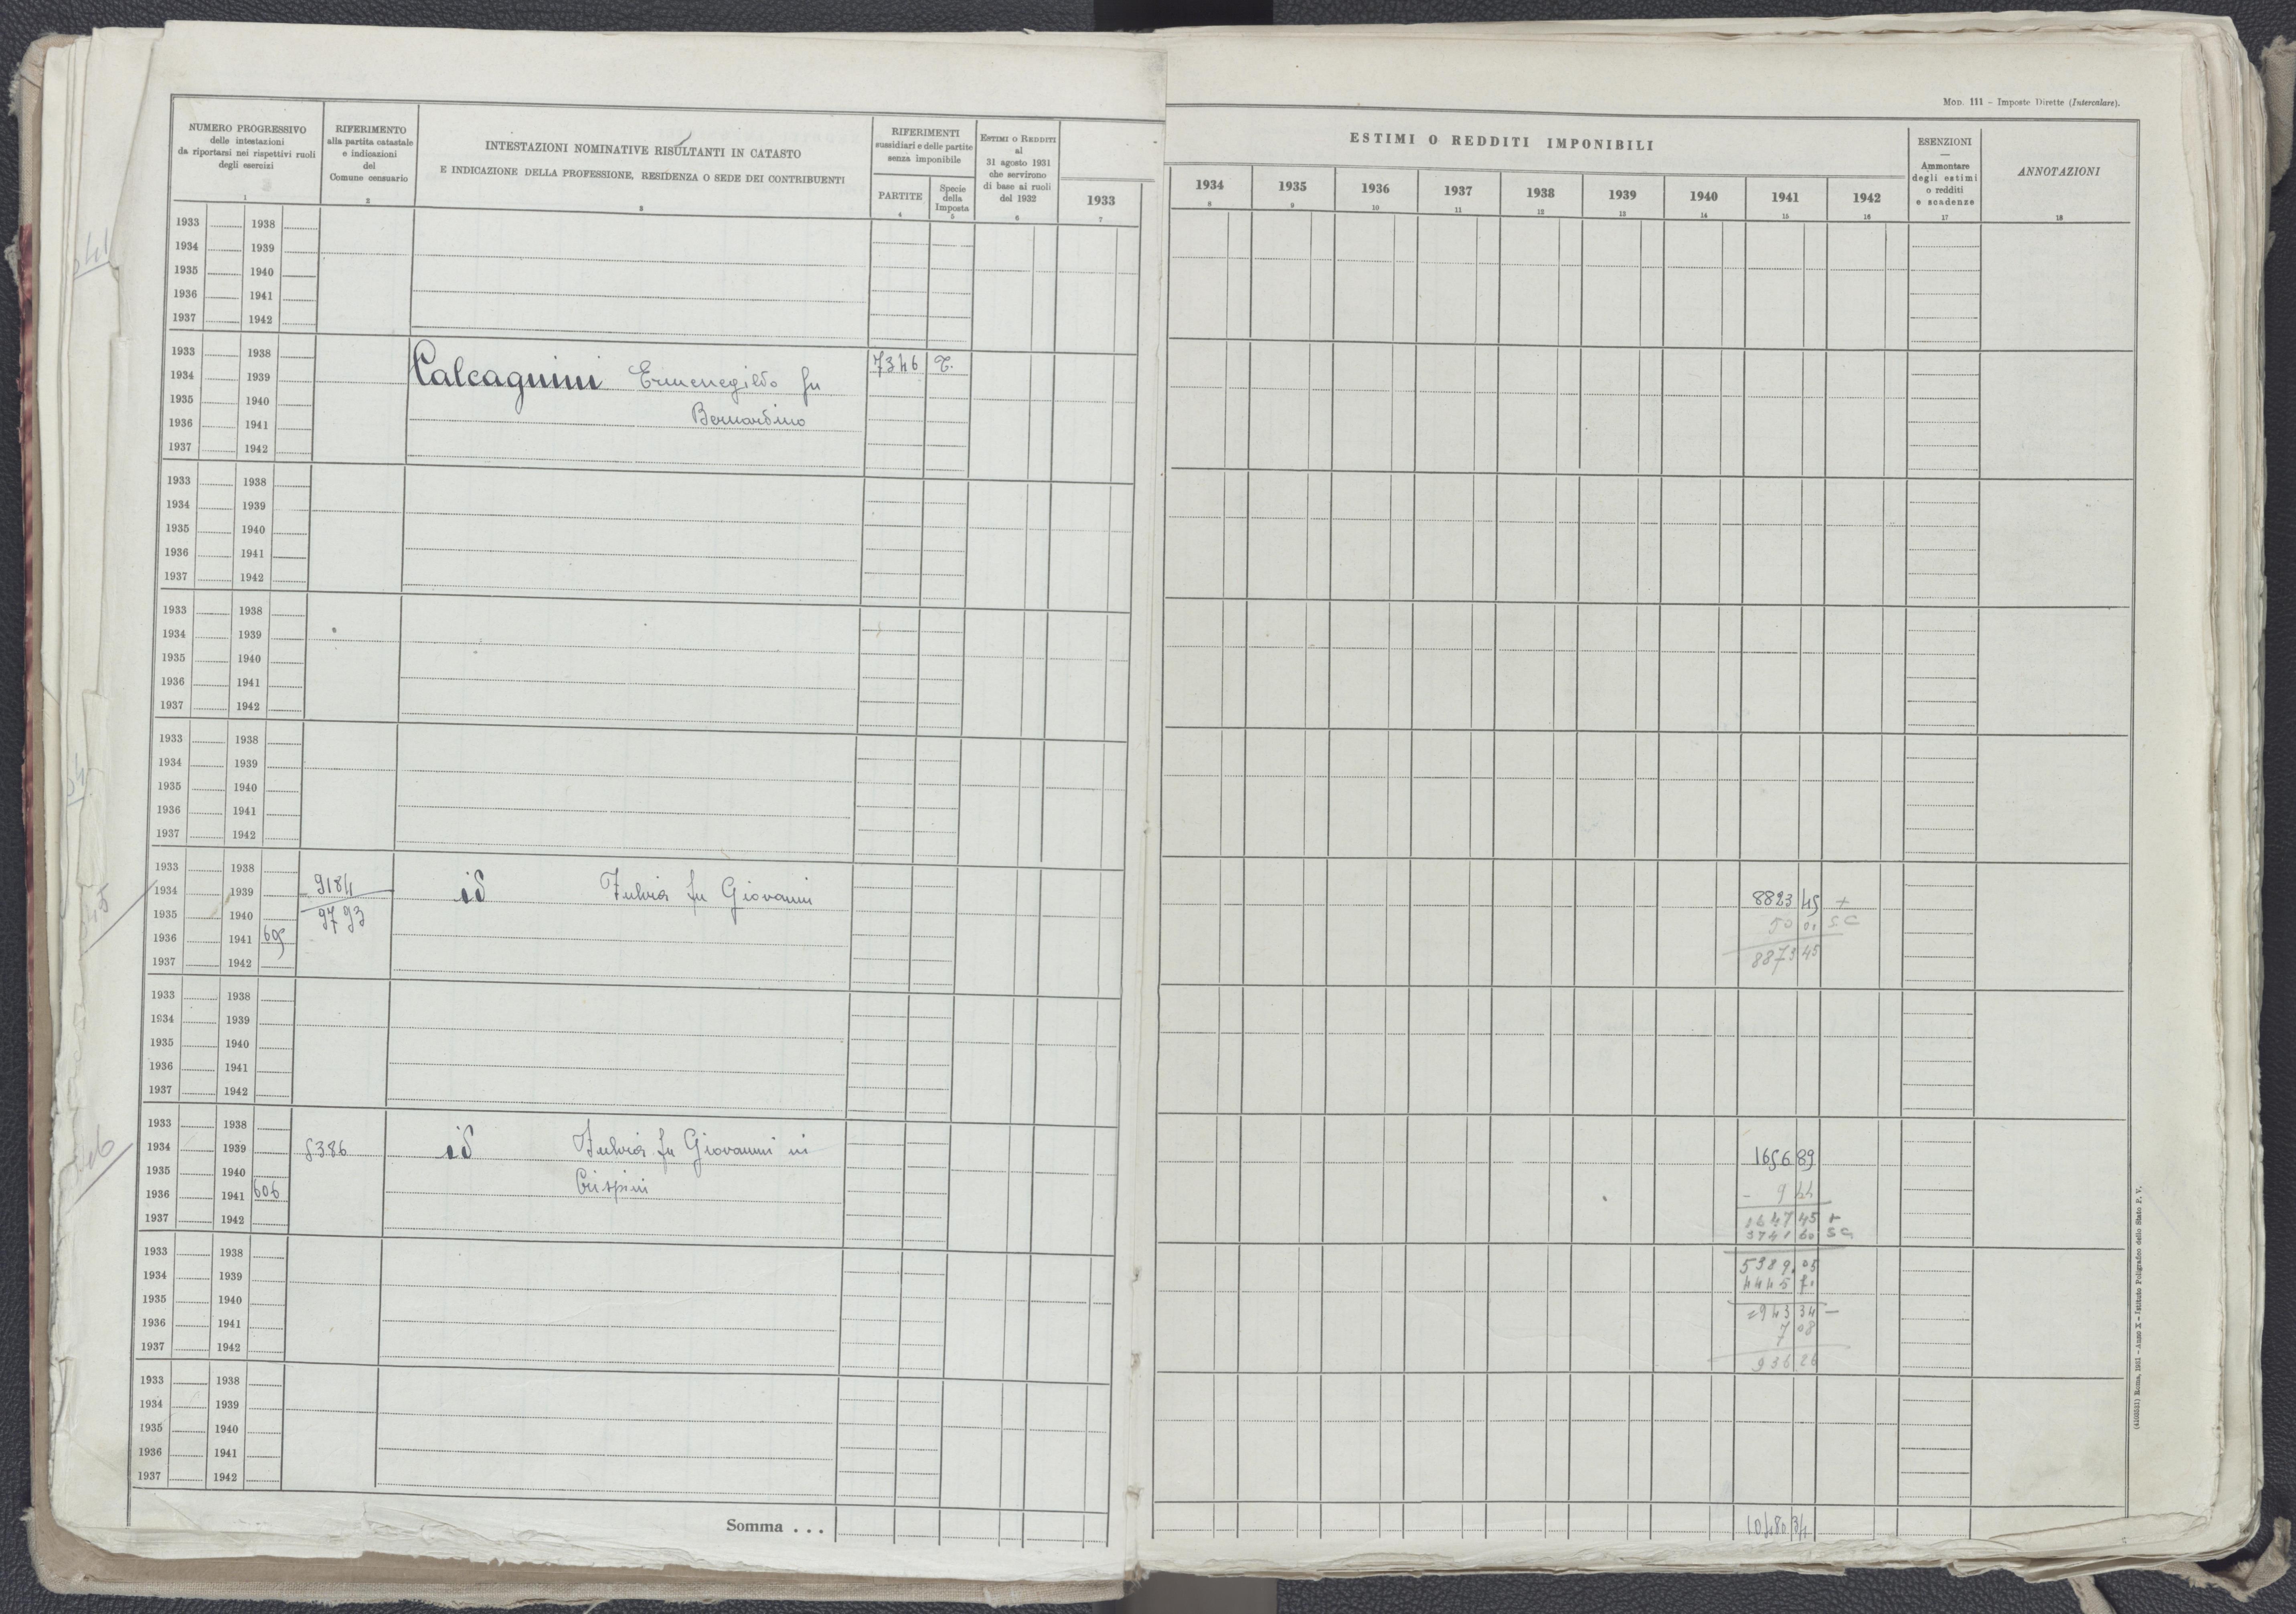 Mod. 111 - Imposte Dirette (Intercalare).
NUMERO PROGRESSIVO
delle intestazioni
da riportarsi nei rispettivi ruoli
degli esercizi
1
RIFERIMENTO
alla partita catastale
e indicazioni
del
Comune censuario
2
INTESTAZIONI NOMINATIVE RISULTANTI IN CATASTO
E INDICAZIONE DELLA PROFESSIONE, RESIDENZA O SEDE DEI CONTRIBUENTI
3
RIFERIMENTI
sussidiari e delle partite
senza imponibile
PARTITE
4
Specie
della
Imposta
5
ESTIMI O REDDITI
al
31 agosto 1931
che servirono
di base ai ruoli
del 1932
6
1933
7
ESTIMI O REDDITI IMPONIBILI
1934 1935 1936 1937 1938 1939 1940 1941 1942
8 9 10 11 12 13 14 15 16
ESENZIONI
—
Ammontare
degli estimi
o redditi
e scadenze
17
ANNOTAZIONI
18
1933 1938
1934 1939
1935 1940
1936 1941
1937 1942
1933 1938
1934 1939 Calcagnini Ermenegildo fu 7346 T.
1935 1940 Bernardino
1936 1941
1937 1942
1933 1938
1934 1939
1935 1940
1936 1941
1937 1942
1933 1938
1934 1939
1935 1940
1936 1941
1937 1942
1933 1938
1934 1939
1935 1940
1936 1941
1937 1942
1933 1938
1934 1939 9184 id Fulvia fu Giovanni 8823 45 +
1935 1940 9793 50 01 SC
1936 1941 605 8873 45
1937 1942
1933 1938
1934 1939
1935 1940
1936 1941
1937 1942
1933 1938
1934 1939 8386 id Fulvia fu Giovanni in 1656 89
1935 1940 Crispini - 9 44
1936 1941 606 1647 45 +
1937 1942 3741 60 SC
1933 1938 5389.05
1934 1939 4445 71
1935 1940 943 34 -
1936 1941 7 08
1937 1942 936 26
1933 1938
1934 1939
1935 1940
1936 1941
1937 1942
Somma . . . 10480 34
(4103531) Roma, 1931 - Anno X - Istituto Poligrafico dello Stato P. V.